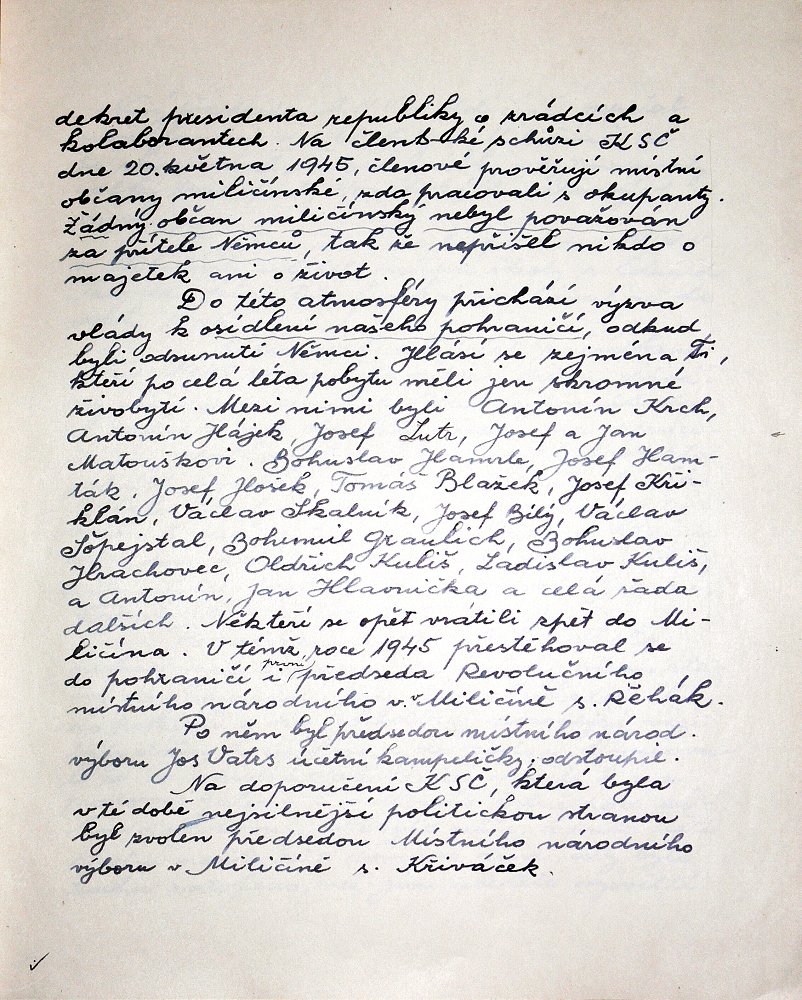 dekret presidenta republiky o zrádcích a
kolaborantech. Na členské schůzi KSČ
dne 20. května 1945, členové prověřují místní
občany miličínské, zda pracovali s okupanty.
Žádný občan miličínský nebyl považován
za přítele Němců, tak že nepřišel nikdo o
majetek ani o život.
Do této atmosféry přichází výzva
vlády k osídlení našeho pohraničí, odkud
byli odsunuti Němci. Hlásí se zejména Ti,
kteří po celá léta pobytu měli jen skromné
živobytí. Mezi nimi byli Antonín Krch,
Antonín Hájek, Josef Lutr, Josef a Jan
Matouškovi. Bohuslav Hamrle, Josef Ham-
ták. Josef Hošek, Tomáš Blažek, Josef Kři-
klán, Václav Skalník, Josef Bílý, Václav
Šopejstal, Bohumil Graulich, Bohuslav
Hrachovec, Oldřich Kuliš, Ladislav Kuliš,
a Antonín, Jan Hlavnička a celá řada
dalších. Někteří se opět vrátili zpět do Mi-
ličína. V témž roce 1945 přestěhoval se
do pohraničí i první předseda Revolučního
místního národního v. v Miličíně s. Řehák.
Po něm byl předsedou místního národ.
výboru Jos Vatrs účetní kampeličky, odstoupil.
Na doporučení KSČ, která byla
v té době nejsilnější politickou stranou
byl zvolen předsedou Místního národního
výboru v Miličíně s. Křiváček.